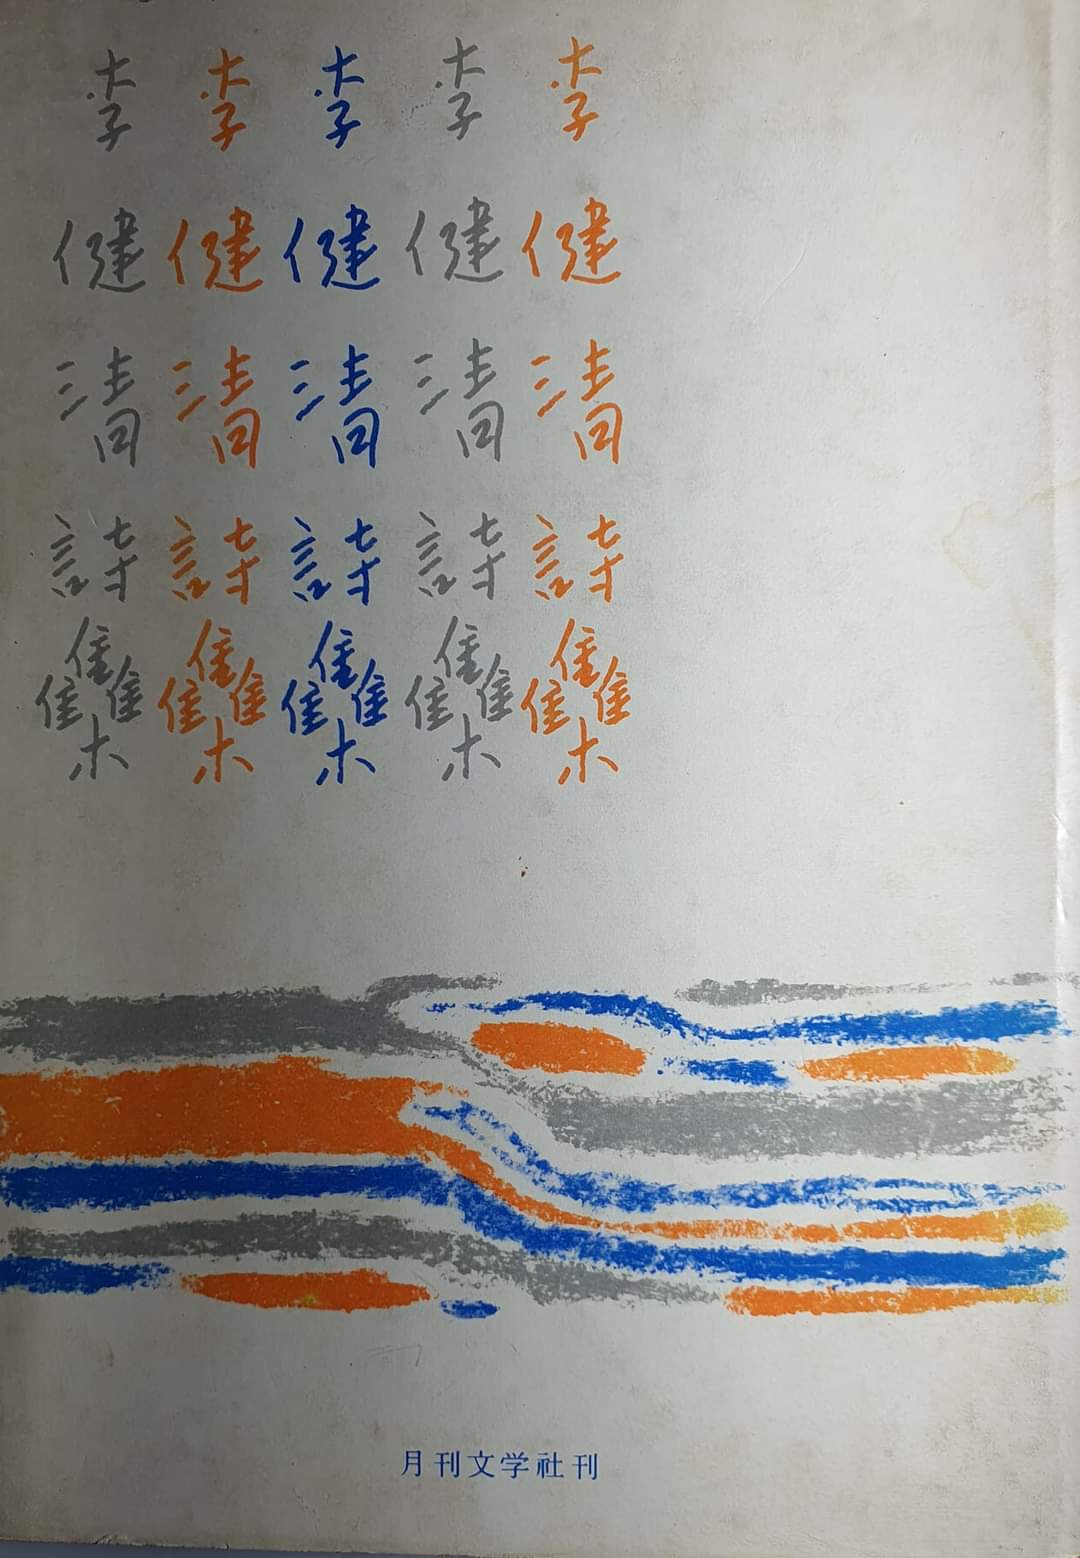 李健清詩雧
李健清詩雧
李健清詩雧
李健清詩雧
李健清詩雧
月刊文学社刊